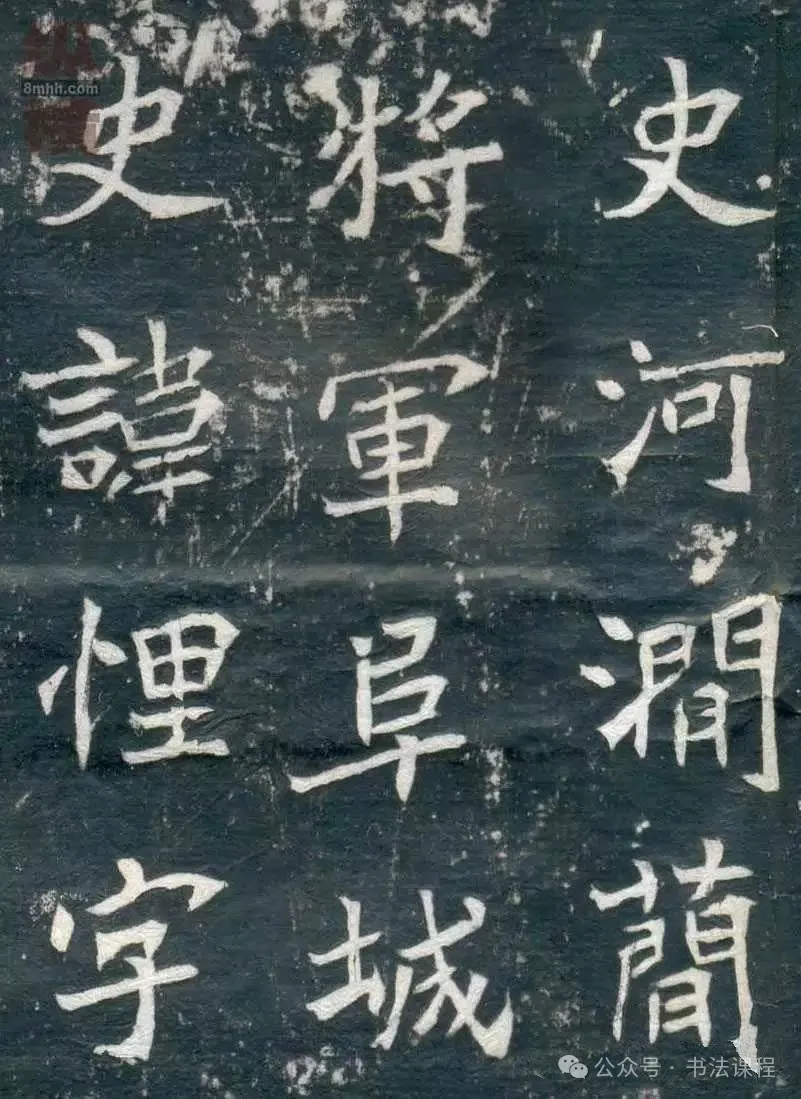 史河澗蕳
將軍阜城
史諱悝字
8mhh.com
公众号 · 书法课程